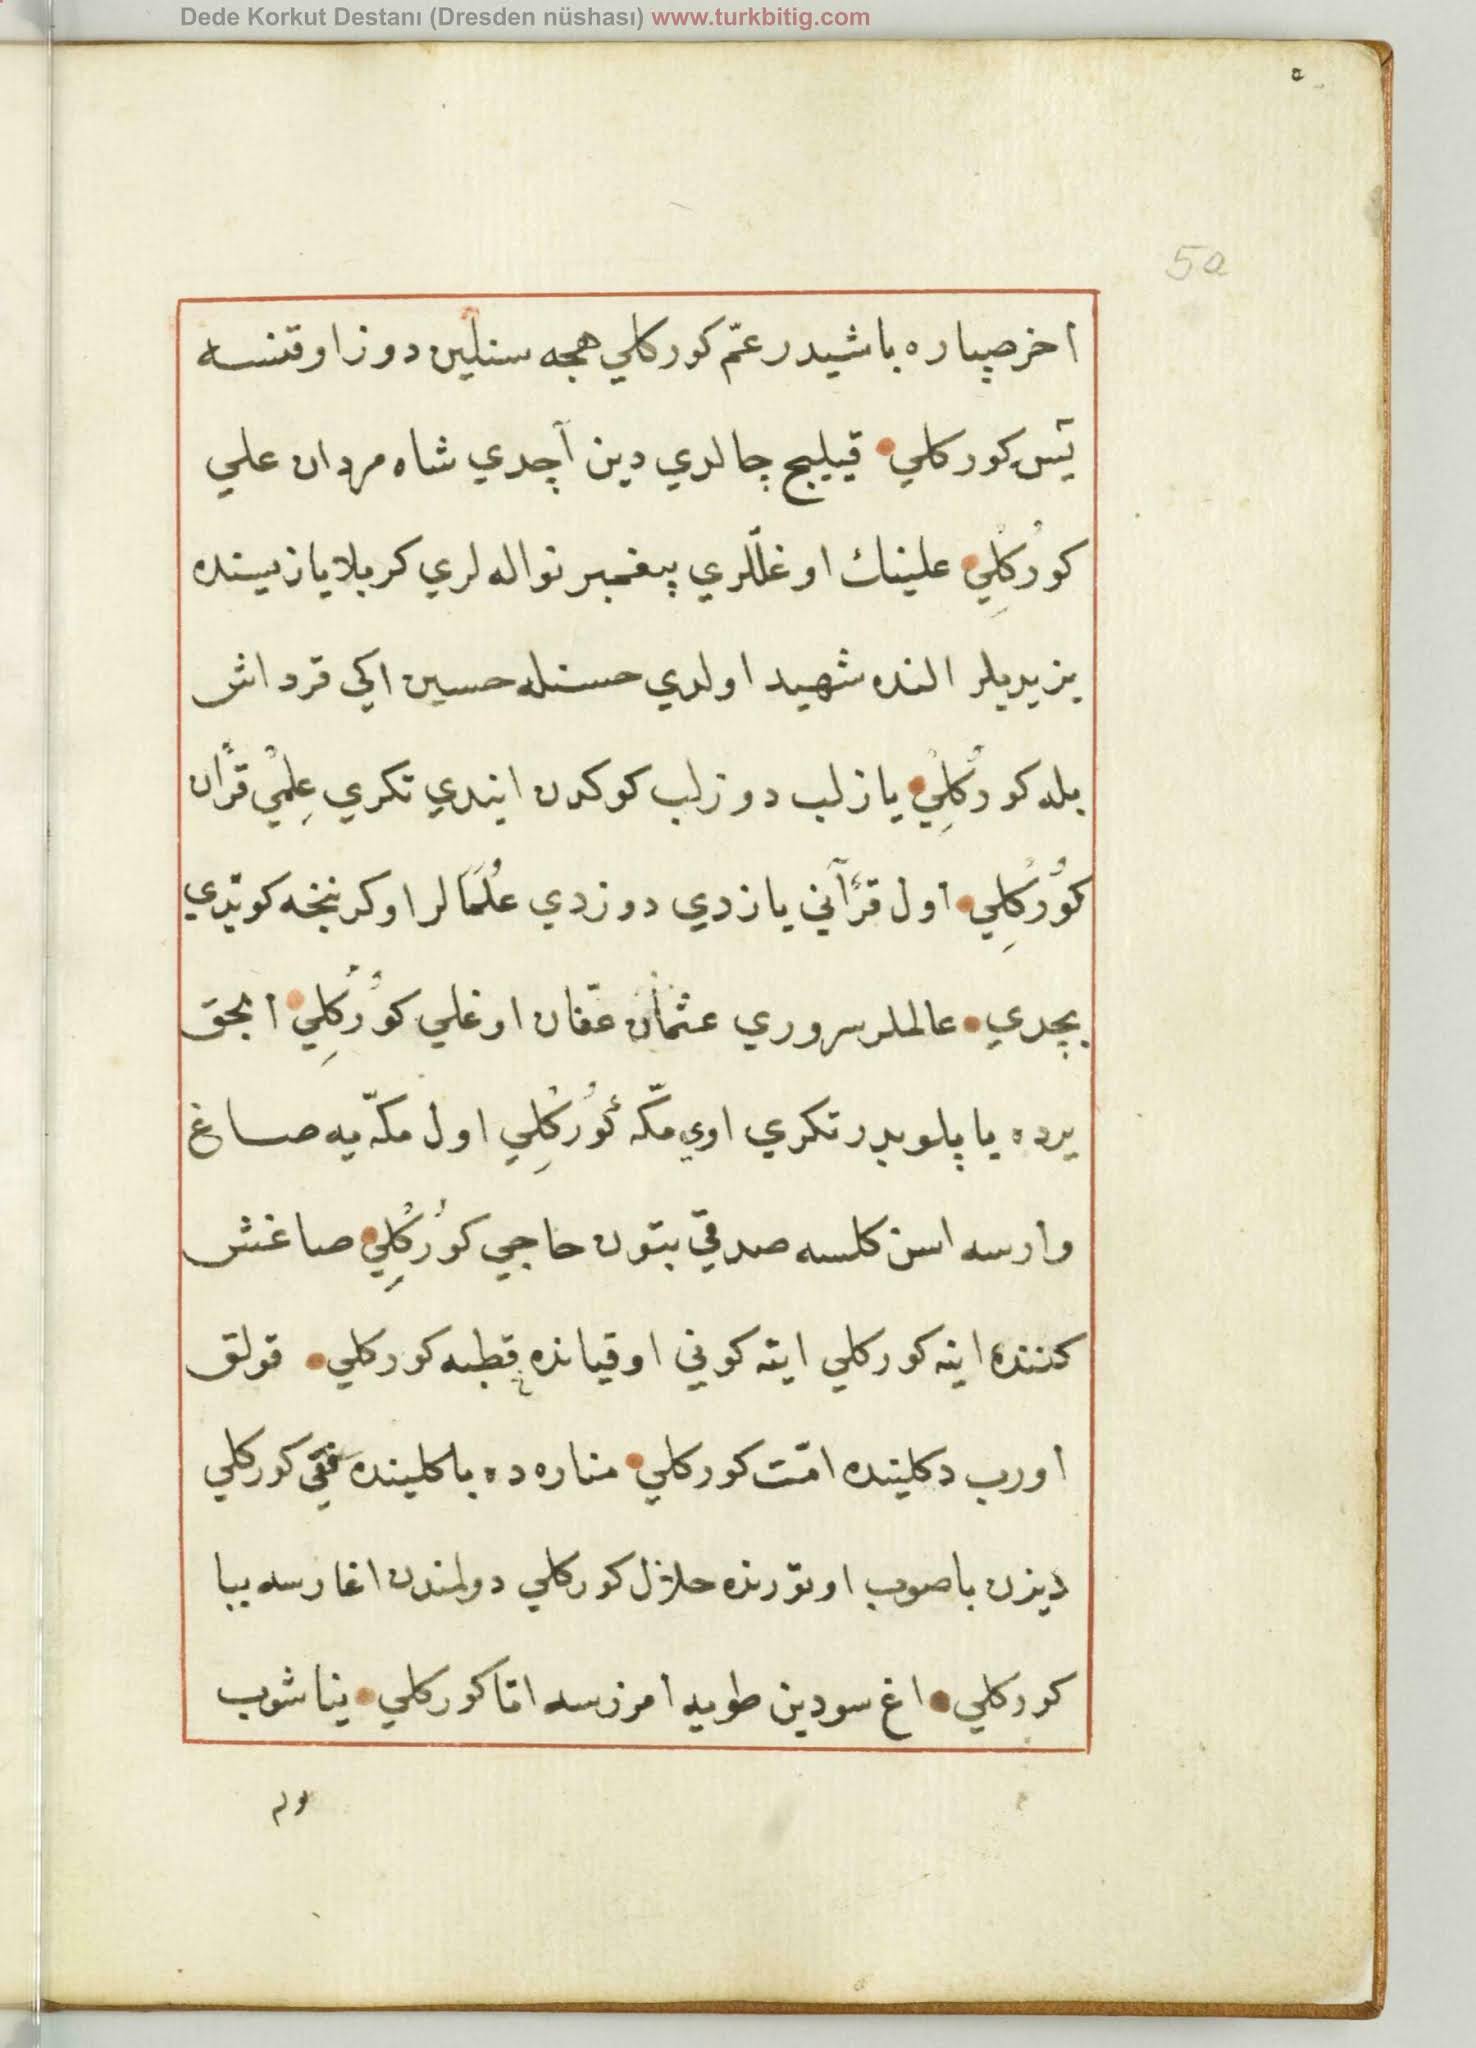 Dede Korkut Destanı (Dresden nüshası) www.turkbitig.com
٥
5a
اخر صپاره باشیدر عمّ کورکلي هجه سنلین دوز اوقنسه
یٓس کورکلي • قیلیج چالدي دین آچدي شاه مردان علي
کوُرکلِي • علینك اوغللري پیغمبر نواله لري کربلا یازیسنده
یزیدیلر النده شهید اولدي حسنله حسین اکي قرداش
بله کوُرکلِي • یازلب دوزلب کوکدن ایندي تکري عِلمي قرآن
کوُرکلِي • اول قرآني یازدي دوزدي عُلَمالر اوکرنخه کویدي
بچدي • عالملر سروري عثمان عفّان اوغلي کوُرکلِي • الچق
یرده یاپلوبدر تکري اوي مکّه کوُرکلِي اول مکّه یه صاغ
وارسه اسن کلسه صدقي بتون حاجي کوُرکلِي • صاغش
کننده اینه کورکلي ایته کوني اوقیانده قطبه کورکلي • قولق
اورب دکلینده امّت کورکلي • مناره ده باکلینده فقي کورکلي
دیزن باصوب اوتورنده حلال کورکلي دولمندن اغارسه ببا
کورکلي • اغ سودین طویه امزرسه انا کورکلي • یناشوب